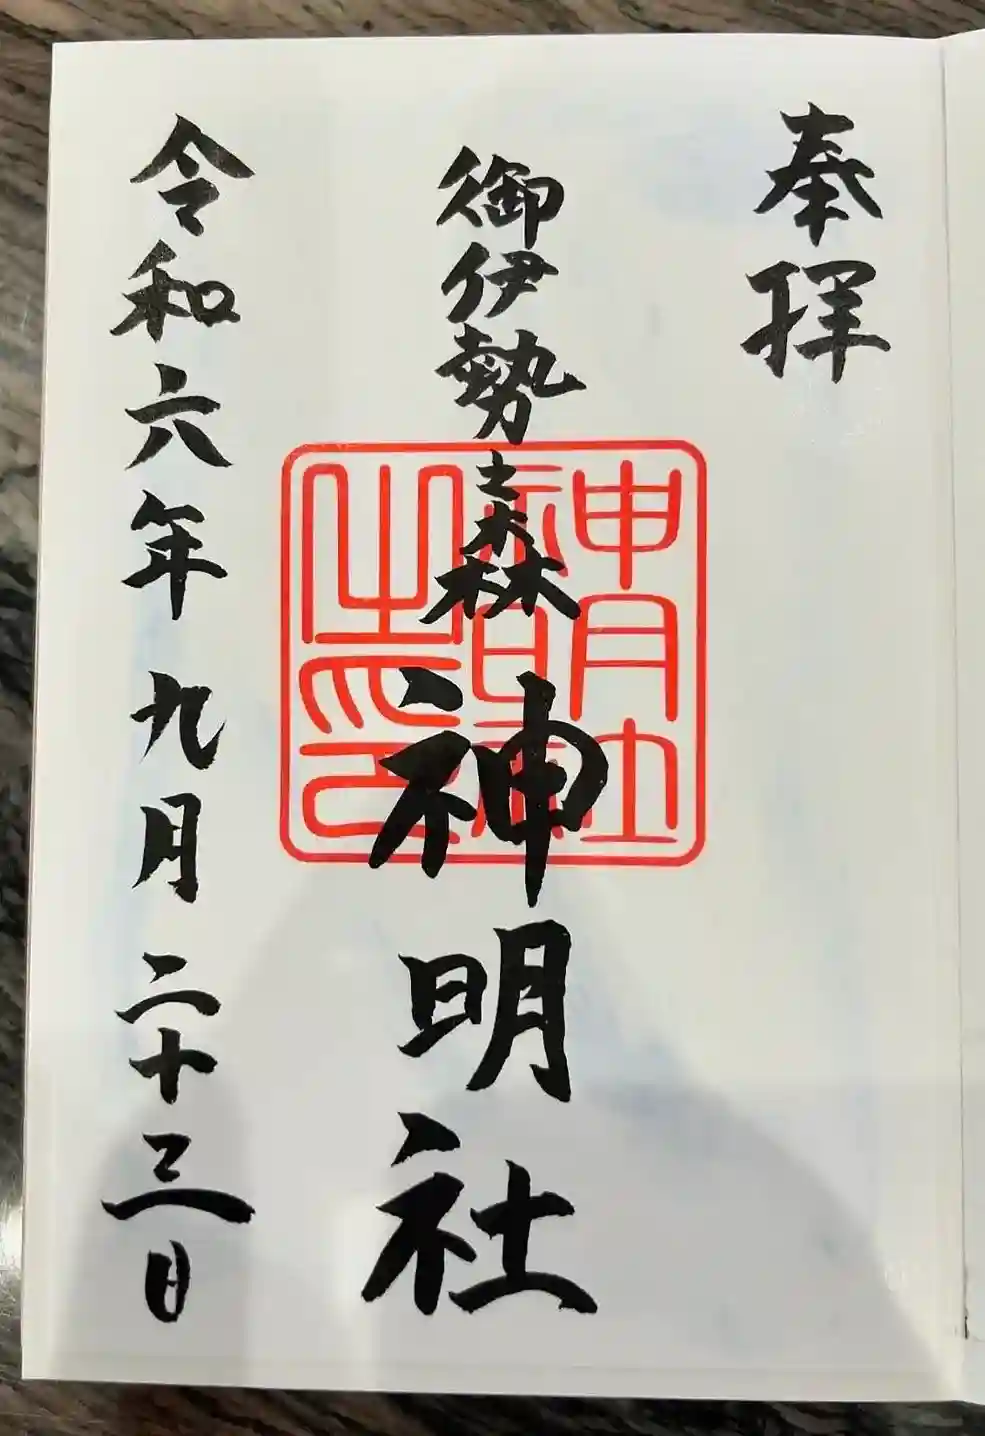 奉拝
御伊勢之森 神明社
令和六年九月二十三日
神明社之印